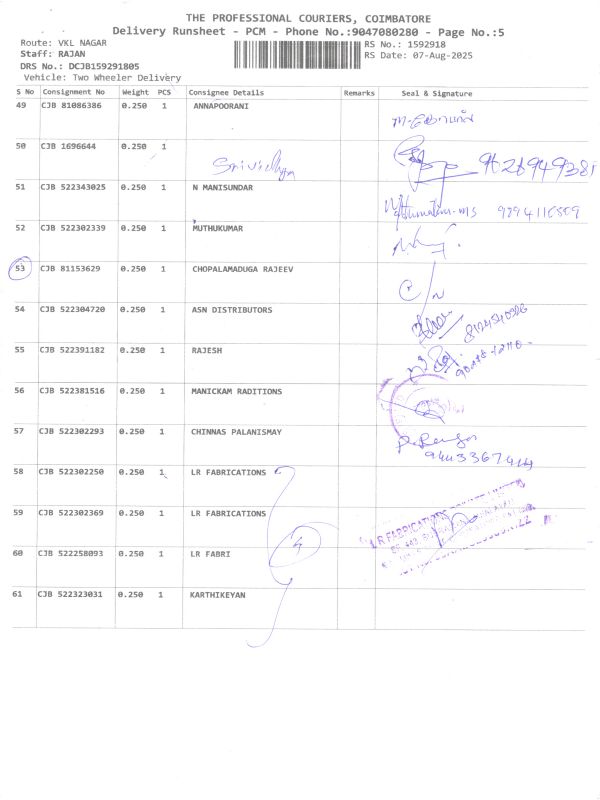 THE PROFESSIONAL COURIERS, COIMBATORE
Delivery Runsheet - PCM - Phone No.:9047080280 - Page No.:5
Route: VKL NAGAR
RS No.: 1592918
Staff: RAJAN
RS Date: 07-Aug-2025
DRS No.: DCJB159291805
Vehicle: Two Wheeler Delivery
S No Consignment No Weight PCS Consignee Details Remarks Seal & Signature
49 CJB 81086386 0.250 1 ANNAPOORANI
50 CJB 1696644 0.250 1 Srividhya
51 CJB 522343025 0.250 1 N MANISUNDAR
52 CJB 522302339 0.250 1 MUTHUKUMAR
53 CJB 81153629 0.250 1 CHOPALAMADUGA RAJEEV
C/N
54 CJB 522304720 0.250 1 ASN DISTRIBUTORS
55 CJB 522391182 0.250 1 RAJESH
56 CJB 522381516 0.250 1 MANICKAM RADITIONS
57 CJB 522302293 0.250 1 CHINNAS PALANISMAY
9443367414
58 CJB 522302250 0.250 1 LR FABRICATIONS
59 CJB 522302369 0.250 1 LR FABRICATIONS
LR FABRICATIONS
60 CJB 522258093 0.250 1 LR FABRI
4
61 CJB 522323031 0.250 1 KARTHIKEYAN